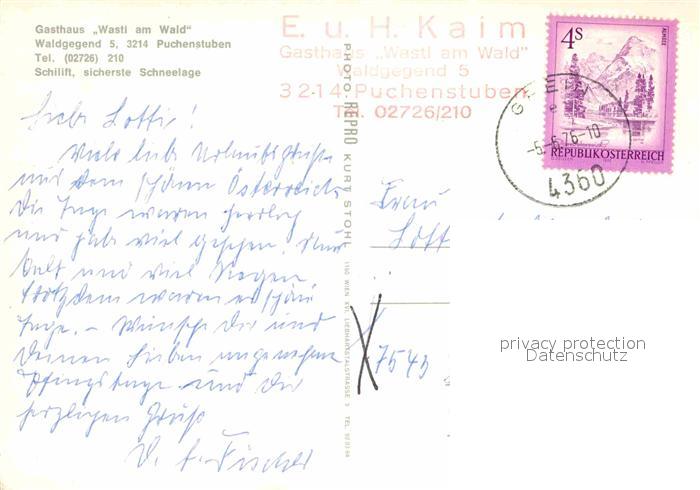 Gasthaus „Wastl am Wald"
Waldgegend 5, 3214 Puchenstuben
Tel. (02726) 210
Schilift, sicherste Schneelage
E. u. H. Kaim
Gasthaus „Wastl am Wald"
Waldgegend 5
3214 Puchenstuben
Tel. 02726/210
4S
ALMSEE
REPUBLIK ÖSTERREICH
GREIN
e
-5.-6.76-10
4360
PHOTO-REPRO KURT STOHL
1160 WIEN XVI, LIEBHARTSTALSTRASSE 3 TEL.
Liebe Lotti!
Viele liebe Urlaubsgrüße
aus dem schönen Österreich
Die Tage waren herrlich
und hab viel gesehen.
und viel Regen
trotzdem waren es schöne
Tage. – Wünsche Dir und
Deinen Lieben angenehme
Pfingsttage und Dir
herzlichen Gruß
Fischer
Frau
Lott
7543
privacy protection
Datenschutz